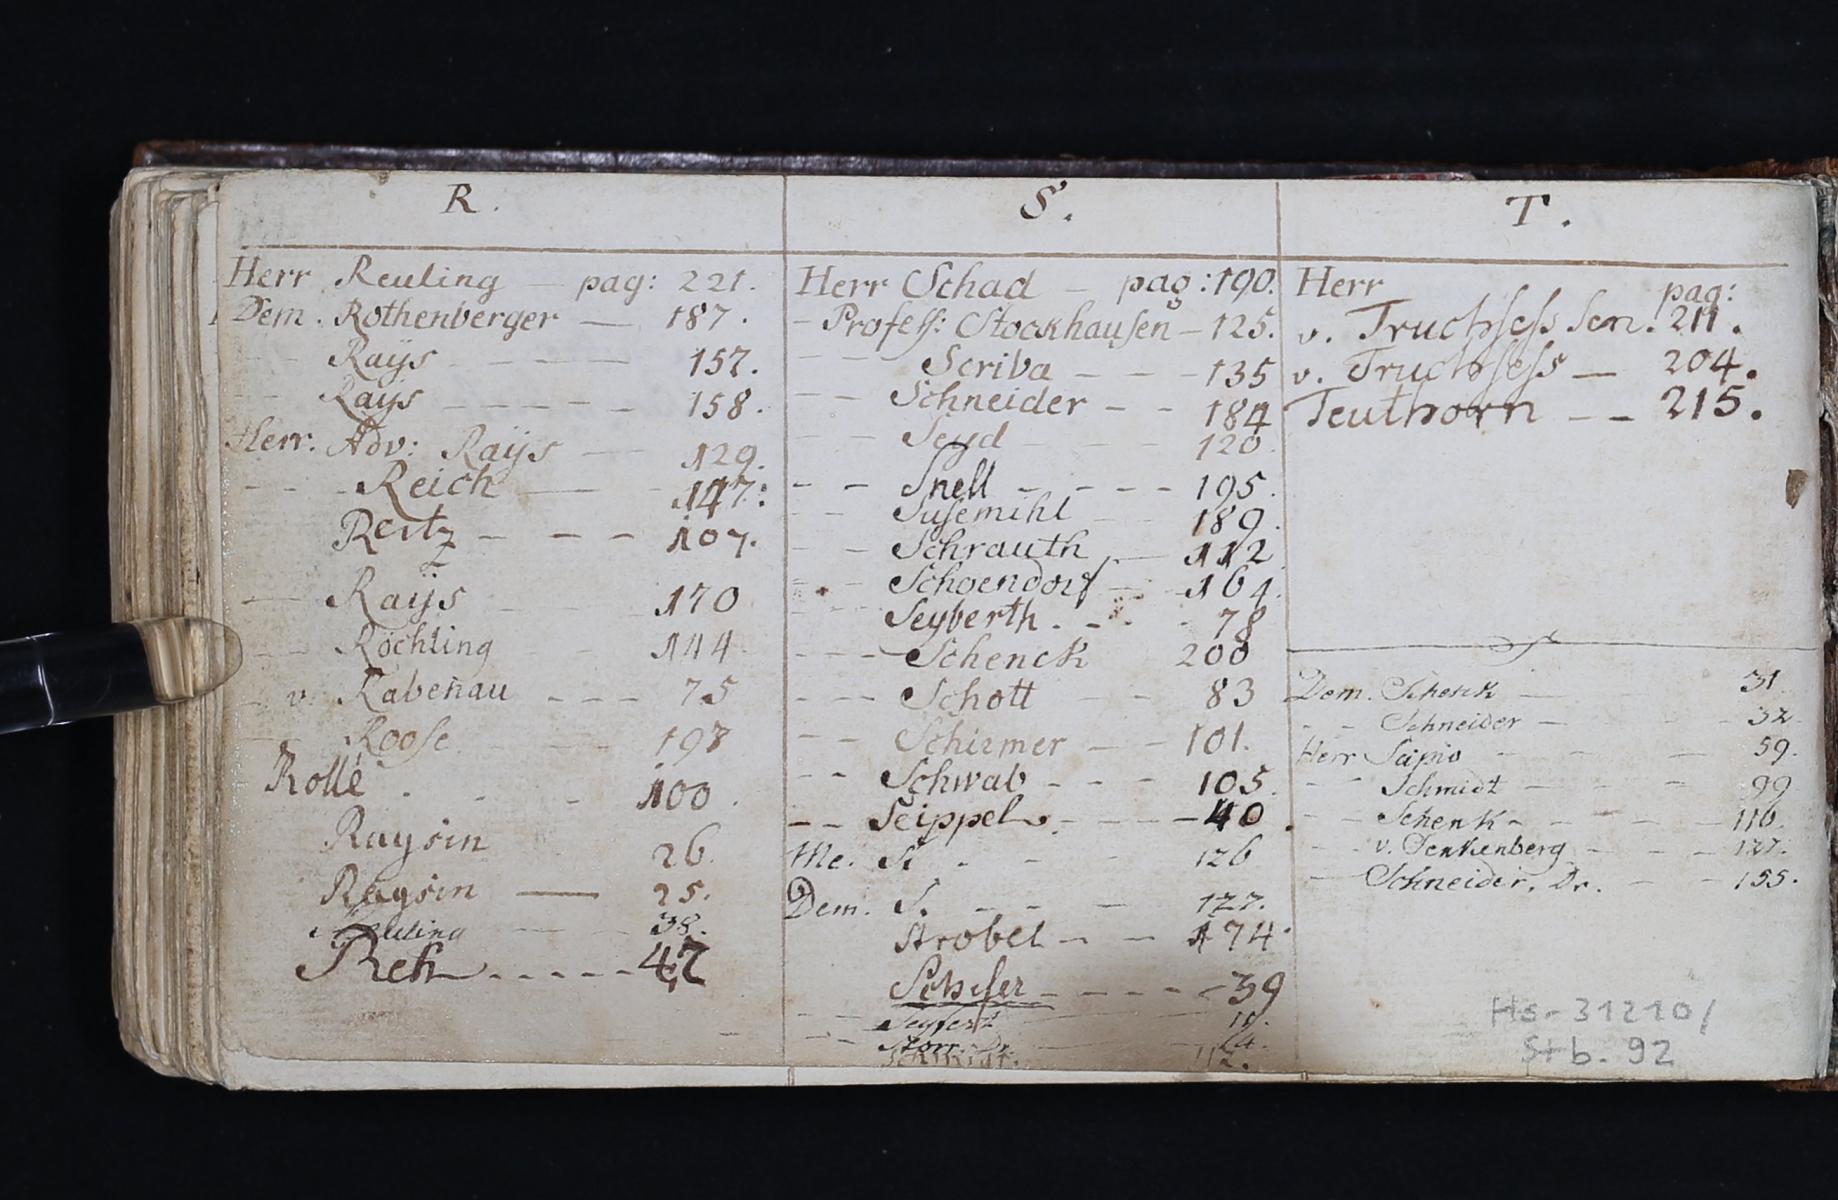 R.
Herr Reuling — pag: 221.
Dem. Rothenberger — 187.
- - Raÿs - - - - 157.
- - Raÿs - - - - - 158.
Herr. Adv: Raÿs — - 129.
- - - Reich — - 147:
Reitz - - - - 107.
— Raÿs - - 170
- - Röchling - - 144
- v. Rabenau - - - 75
- - Roose - - - 198
Rollé . - - 100.
Raysin 26.
Raysin — 25.
38.
Reh - - - - - 47
S.
Herr Schad - pag: 190.
- Profess: Stockhausen - 125.
- - Scriba - - - 135
- - Schneider - - 184
- - Seyd - - - 120
- - Snell - - - - 195.
- - Susemihl - 189.
- - Schrauth — 112
- - Schoendorf - - 164.
- - - Seyberth . - - - 78
- - - Schenck 200
- - - Schott - - 83
- - Schirmer - - 101.
- - Schwab - - - 105.
- - Seippel - - - - 40.
Me. S. - - - 126
Dem. S. - - - 127.
Strobel - - 174
- - - - 39
- - Seyfert
- - Storr. Dr. 24.
Schmidt. 112.
T.
Herr pag:
v. Truchsess sen. 211.
v. Truchsess — 204.
Teuthorn - - 215.
Dem. Schenk — - 31
- - Schneider - - 32.
Herr Scipio - - - 59.
- - Schmidt - - - 99
- - Schenk - - - - 116.
- - v. Senkenberg - - - 127.
- Schneider, Dr. - - 155.
Hs-31210/
Stb. 92